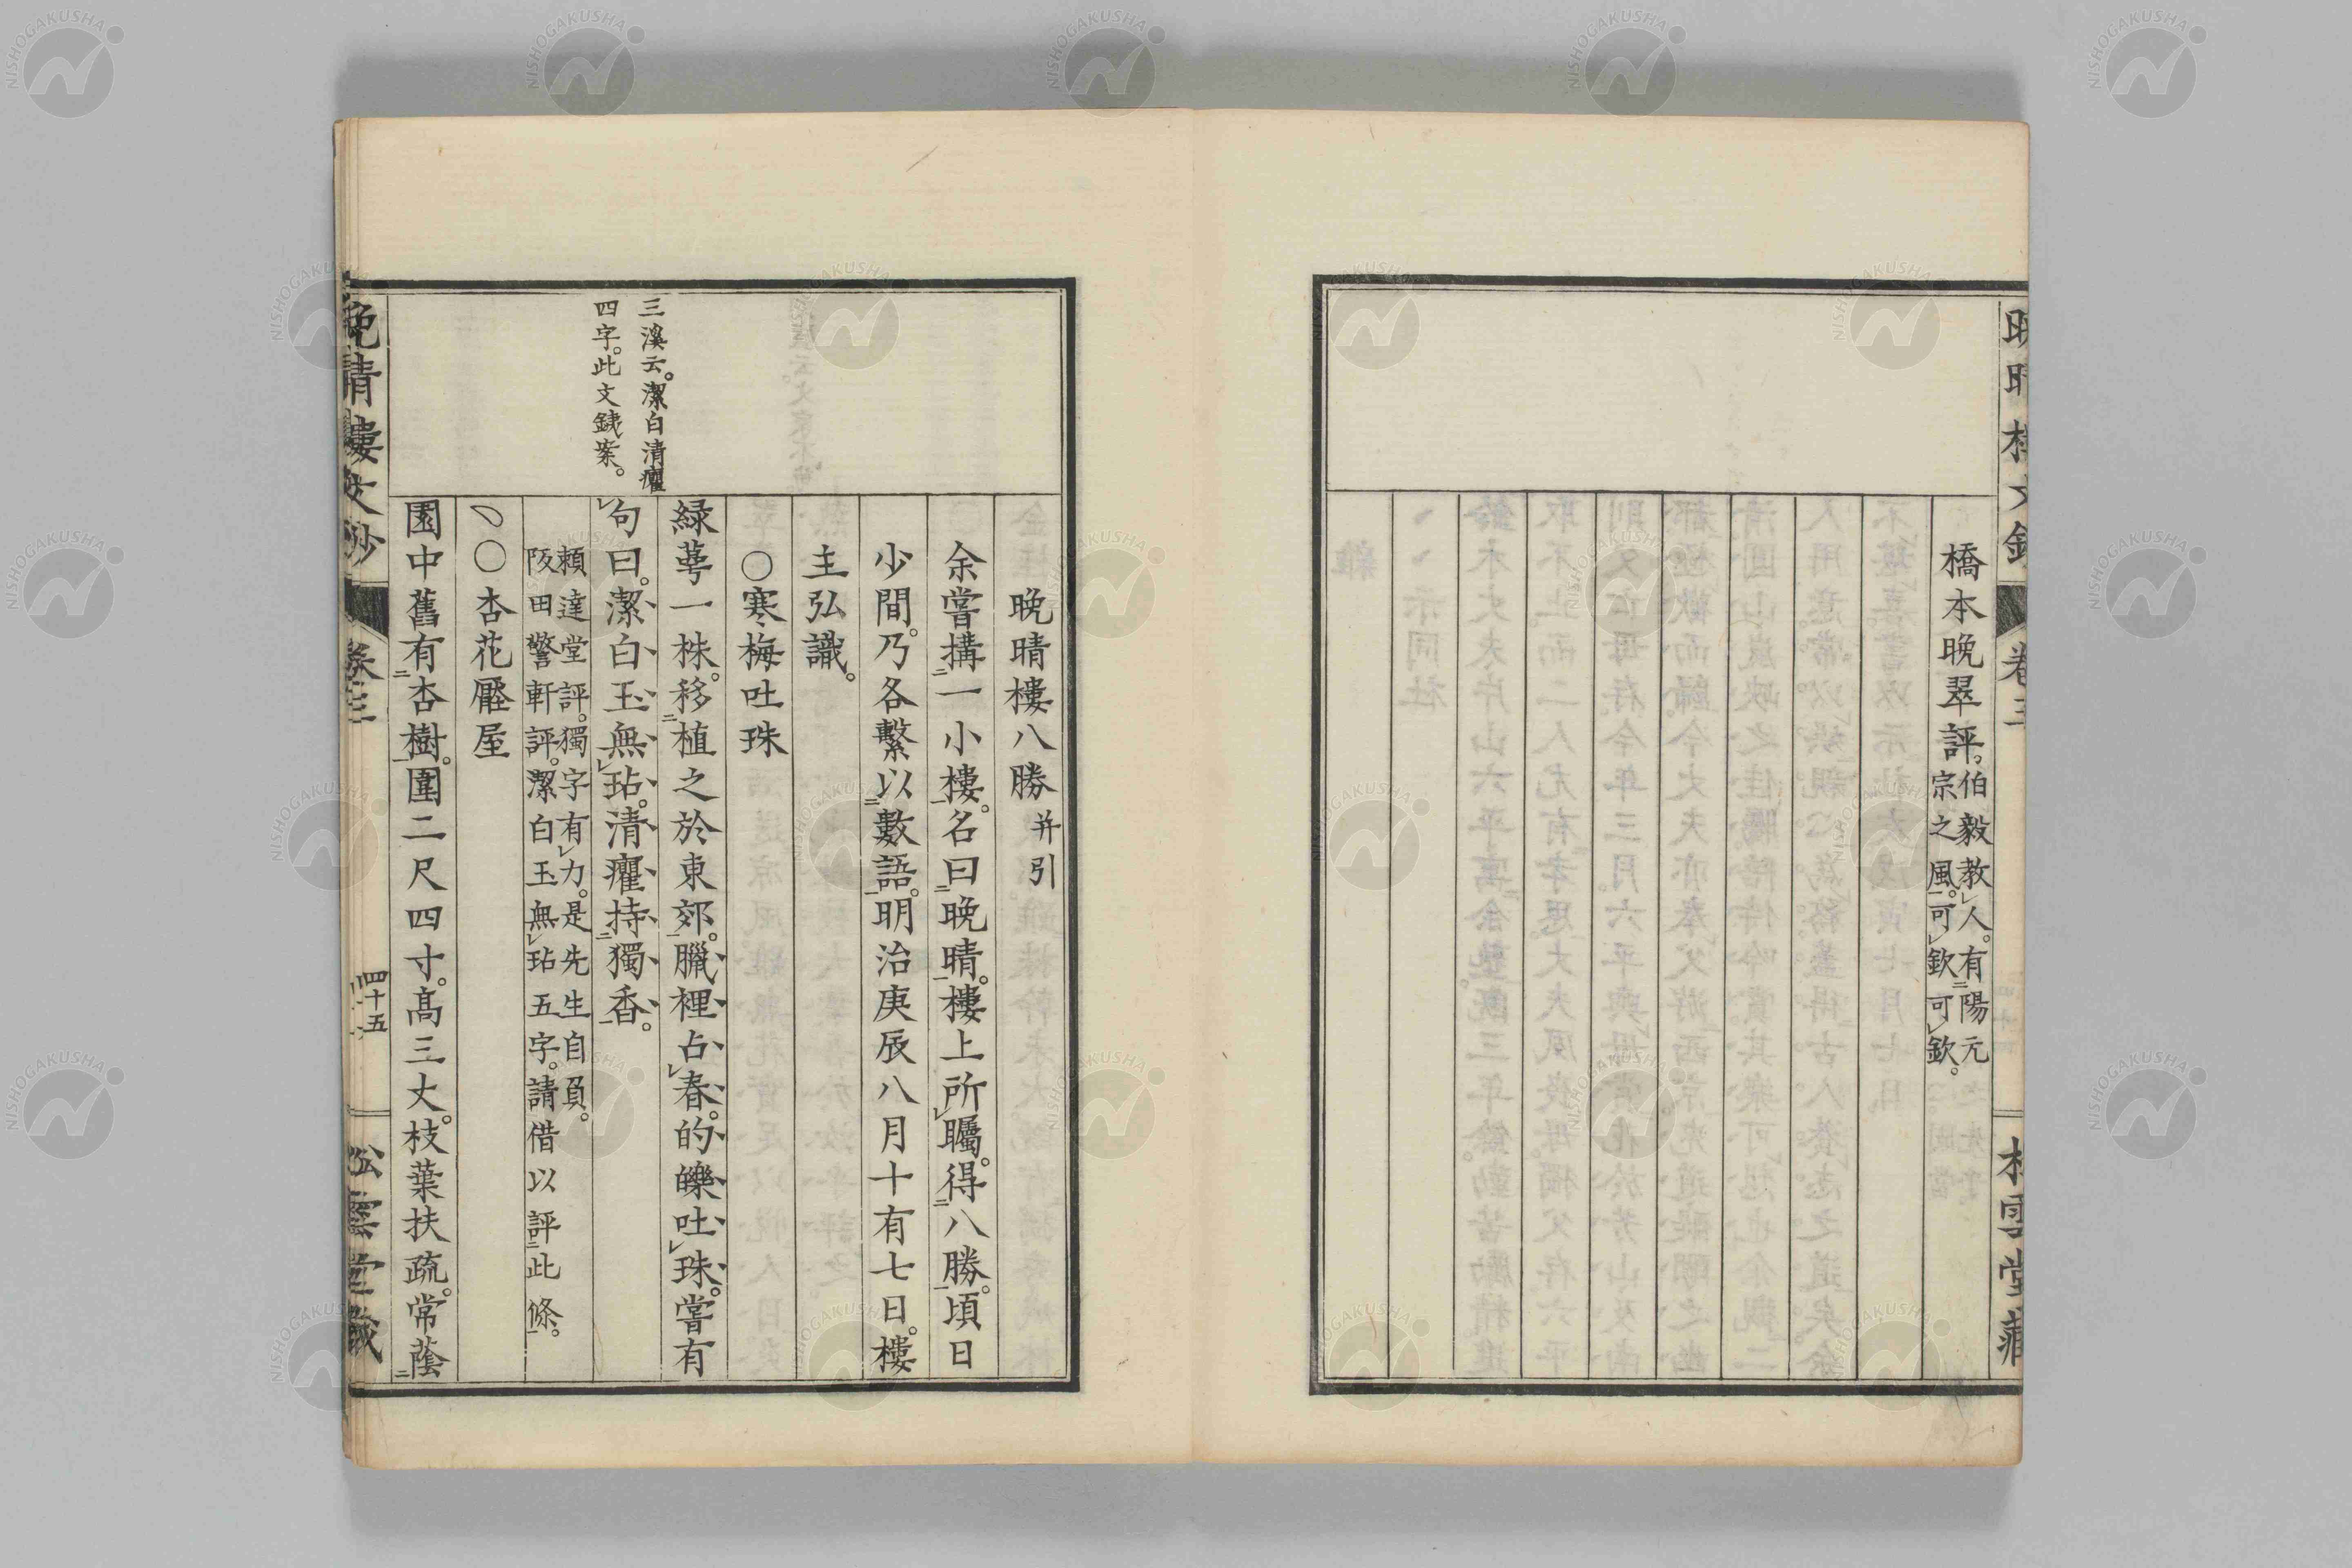 橋本晩翠評。伯毅教人。有陽元
宗之風。可欽可欽。
卷三
晚晴樓八勝 并引
余嘗搆一小樓。名曰晚晴。樓上所矚。得八勝。頃日
少間。乃各繫以數語。明治庚辰八月十有七日。樓
主弘識。
○寒梅吐珠
緑萼一株。移植之於東郊。臘裡占春。的皪吐珠。嘗有
句曰。潔白玉無玷。清癯持獨香。
賴達堂評。獨字有力。是先生自負。
阪田警軒評。潔白玉無玷五字。請借以評此條。
○杏花壓屋
園中舊有杏樹。圍二尺四寸。高三丈。枝葉扶疏。常蔭
三溪云。潔白清癯
四字。此文鐵案。
晚晴樓文鈔
卷三
四十五
松雲堂藏
NISHOGAKUSHA